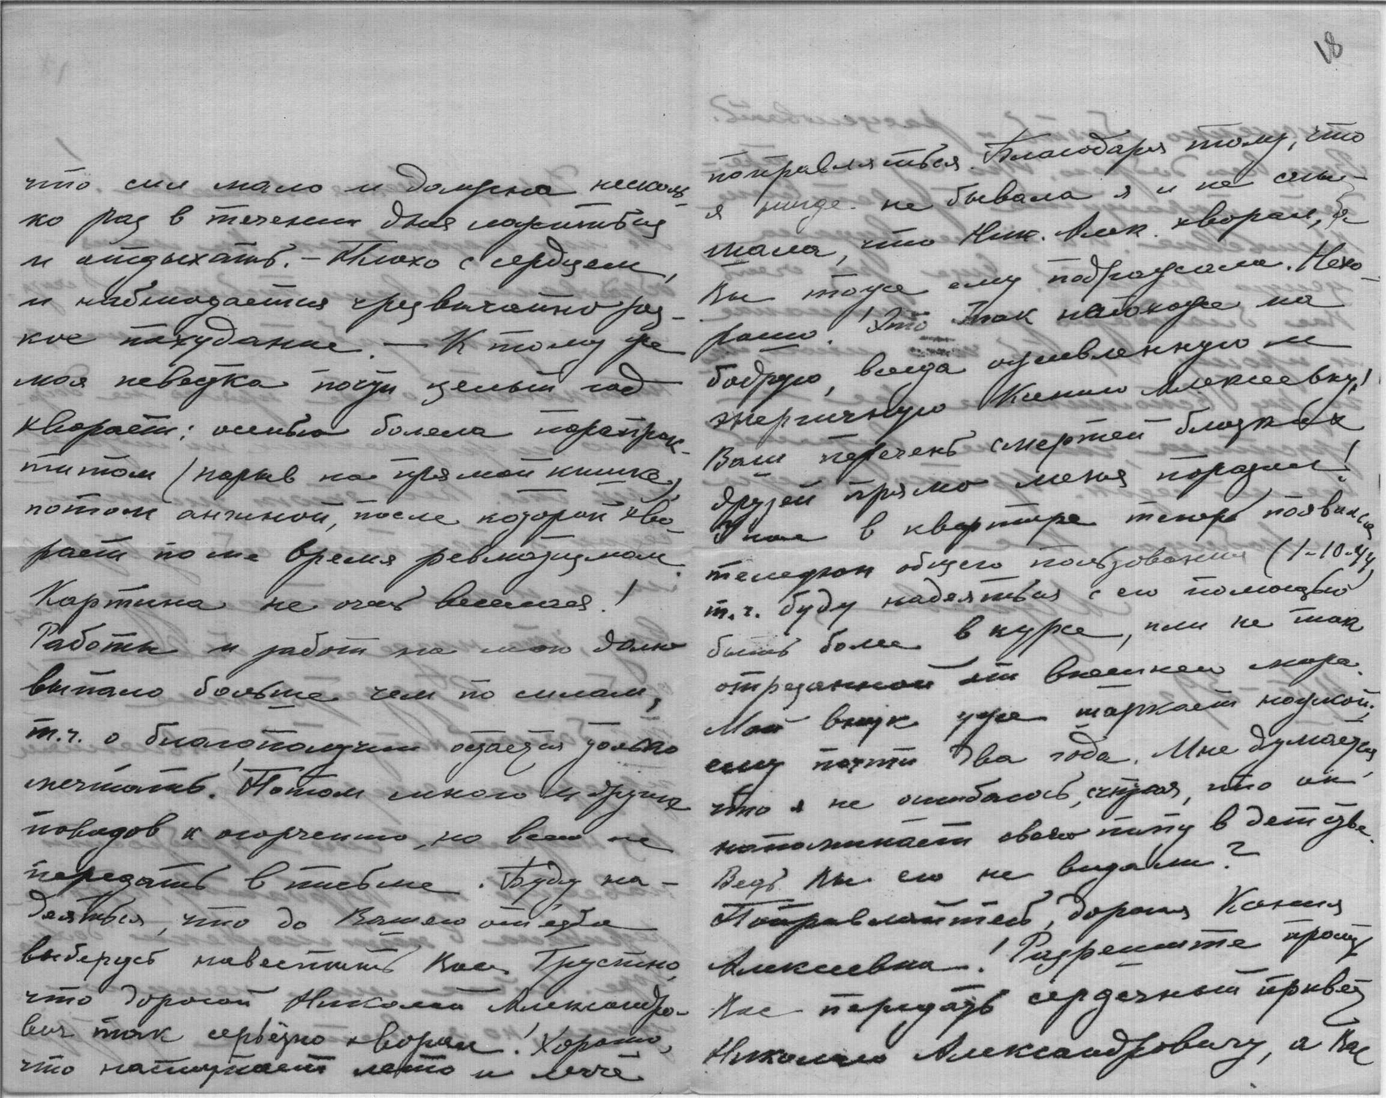 что сил мало и должна несколь-
ко раз в течении дня ложиться
и отдыхать. – Плохо с сердцем,
и наблюдается чрезвычайно рез-
кое похудание. – К тому же
моя невестка почти целый год
хворает: осенью болела парапрок-
титом (нарыв на прямой кишке)
потом ангиной, после которой хво-
рает по сие время ревматизмом.
Картина не очень веселая!
Работы и забот на мою долю
выпало больше чем по силам,
т.ч. о благополучии остается только
мечтать. Потом много и других
поводов к огорчению, но всего не
передать в письме. Буду на-
деяться, что до Вашего отъезда
выберусь навестить Вас. Грустно,
что дорогой Николай Александро-
вич так серьёзно хворал! Хорошо,
что наступает лето и легче
18
поправляться. Благодаря тому, что
я нигде не бывала я и не слы-
шала, что Ник. Алек. хворал,
Вы тоже ему подражали. Нехо-
рошо! Это так непохоже на
бодрую, всегда оживленную и
энергичную Ксению Алексеевну!
Ваш перечень смертей близких
друзей прямо меня поразил!
У нас в квартире теперь появился
телефон общего пользования (1-10-44)
т.ч. буду надеяться с его помощью
быть более в курсе, или не так
отрезанной от внешнего мира.
Мой внук уже шаркает ножкой;
ему почти два года. Мне думается,
что я не ошибаюсь, считая, что он
напоминает своего папу в детстве.
Ведь Вы его не видали?
Поправляйтесь, дорогая Ксения
Алексеевна! Разрешите прошу
Вас передать сердечный привет
Николаю Александровичу, а Вас